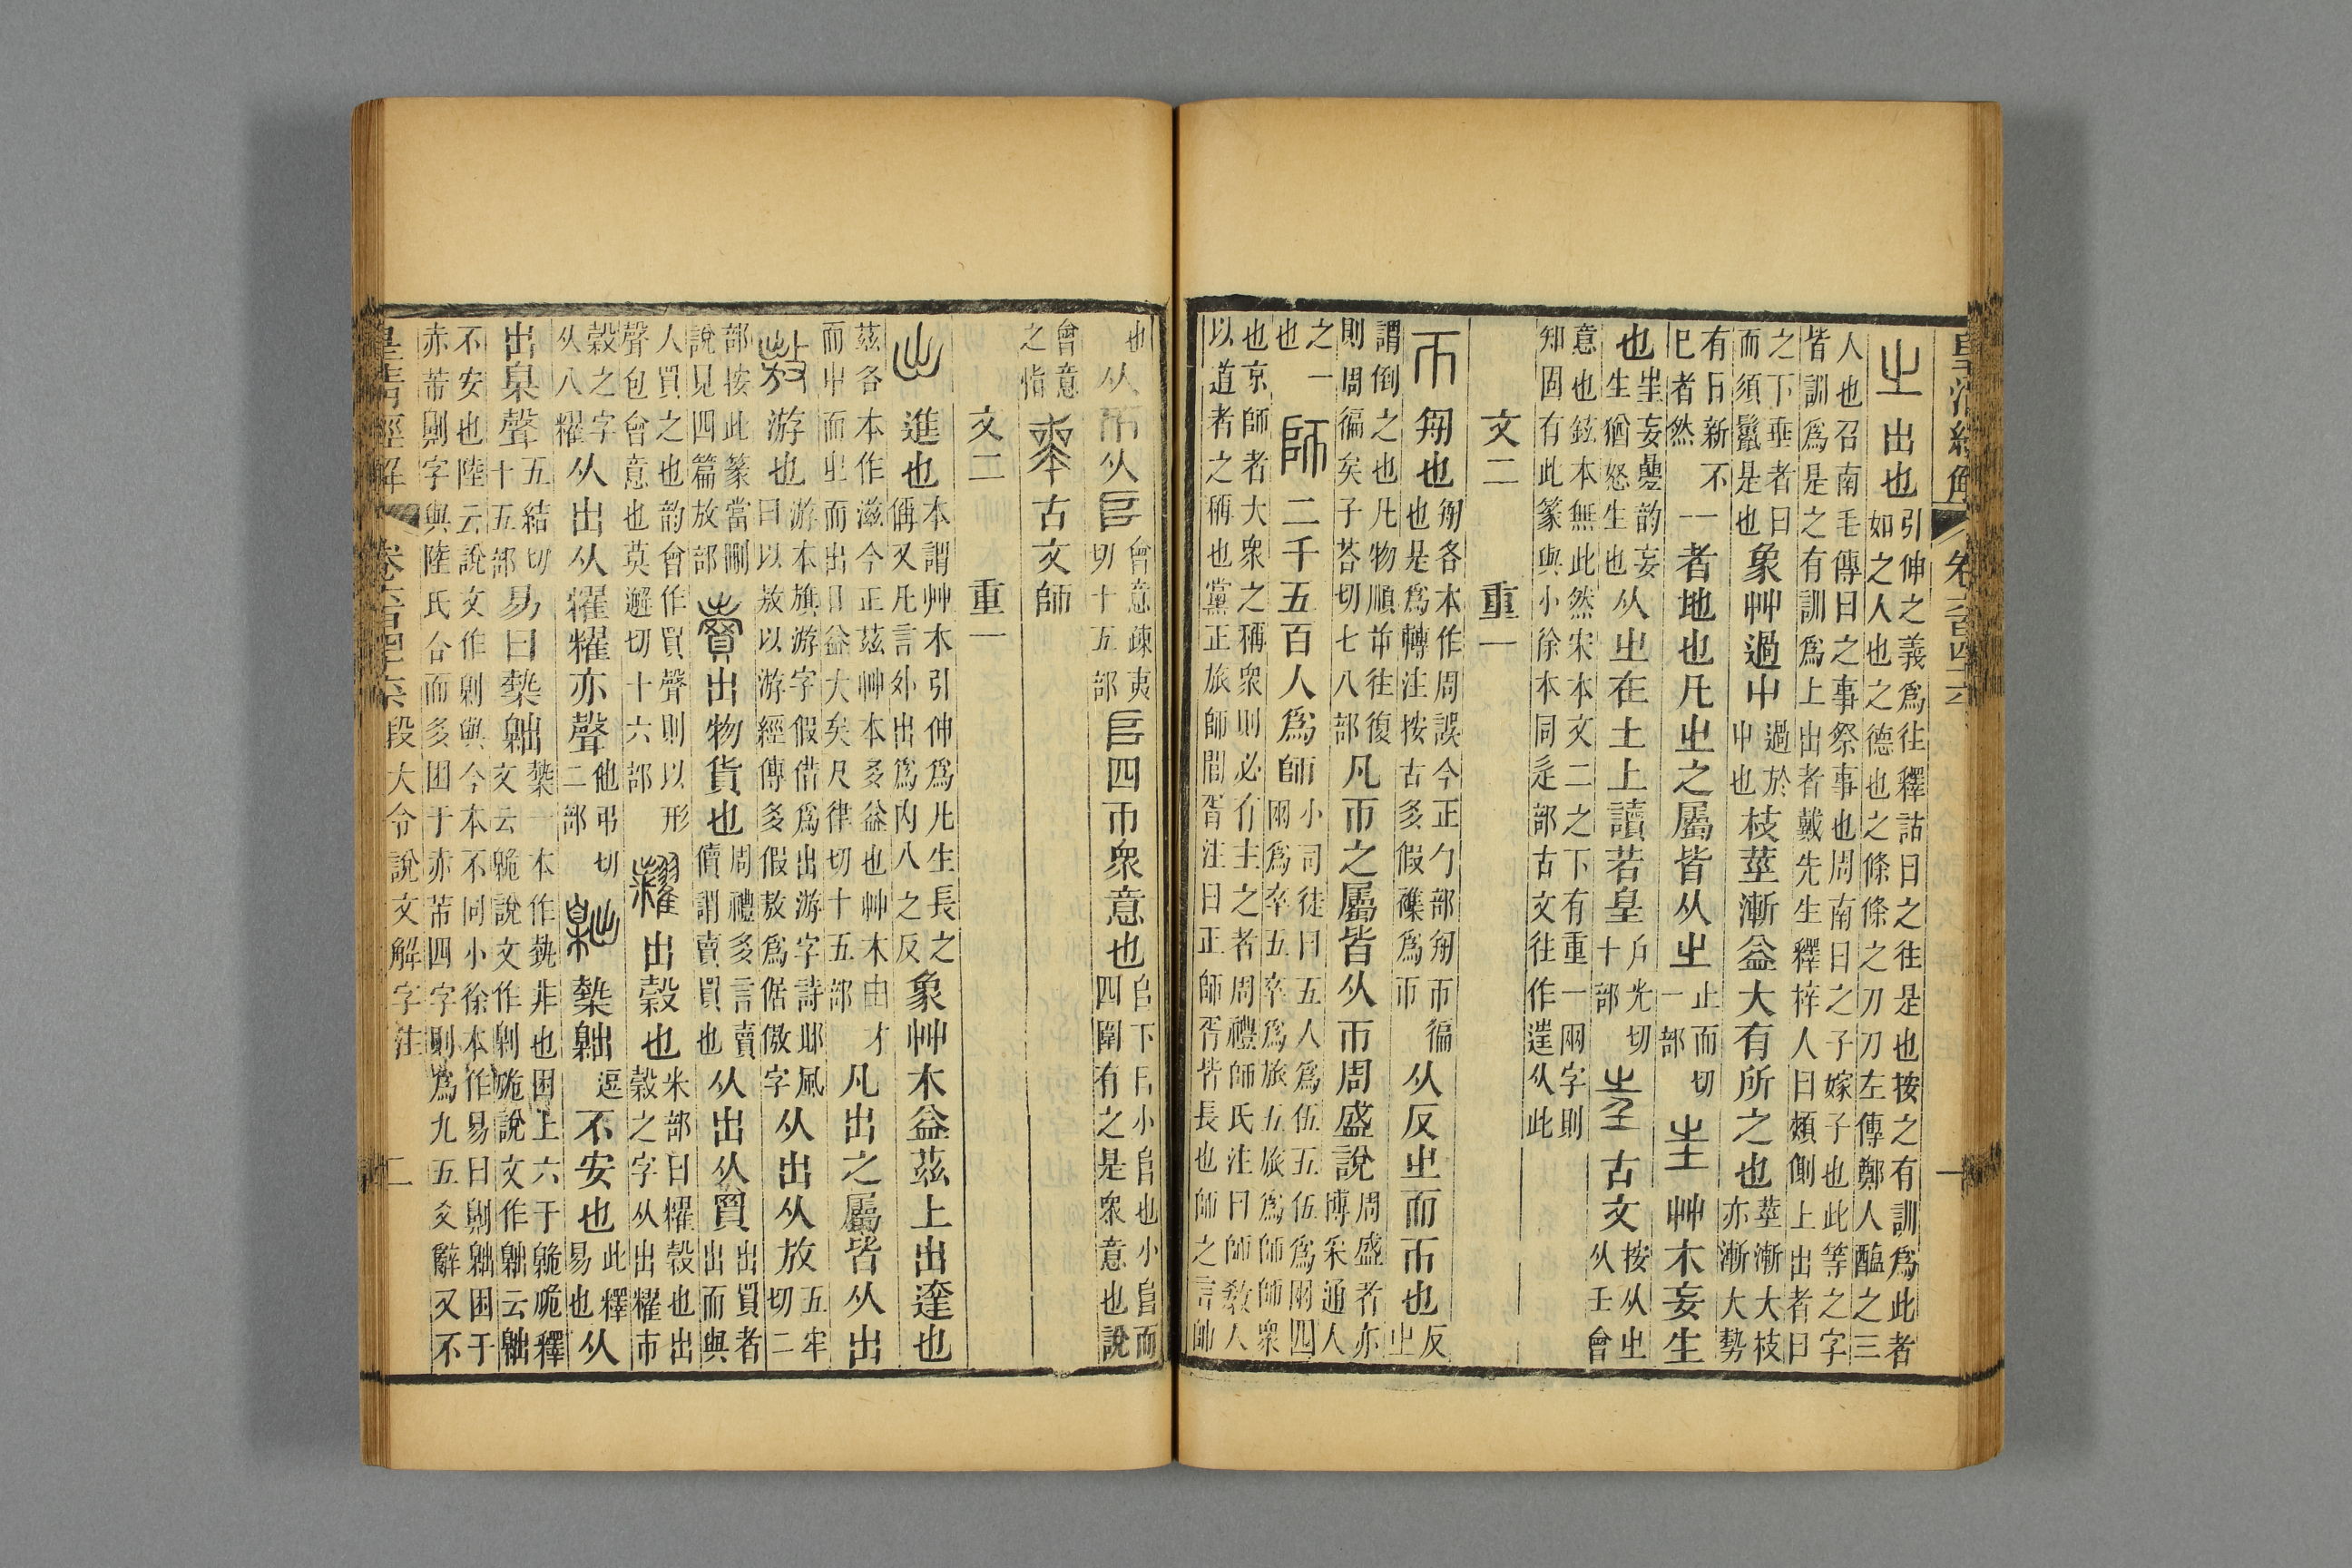 皇清經解 卷六百四十六 一
㞢 出也引伸之義爲往釋詁曰之往是也按之有訓爲此者如之人也之德也之條條之刀刀左傳鄭人醢之三
人也召南毛傳曰之事祭事也周南曰之子嫁子也此等之字皆訓爲是之有訓爲上出者戴先生釋梓人曰頰側上出者曰
之下垂者曰而須鬣是也象艸過屮過於屮也枝莖漸益大有所之也莖漸大枝亦漸大勢
有日新不已者然一者地也凡㞢之屬皆从㞢止而切一部 㞷 艸木妄生
也㞷妄疊韵妄生猶怒生也从㞢在土上讀若皇戶光切十部 古文按从㞢从王會
意也鉉本無此然宋本文二之下有重一兩字則知固有此篆與小徐本同辵部古文往作𨓹从此
文二 重一
帀 匊也匊各本作周誤今正勹部匊帀徧也是爲轉注按古多假襍爲帀从反㞢而帀也反㞢
謂倒之也凡物順屰往復則周徧矣子荅切七八部凡帀之屬皆从帀周盛說周盛者亦博采通人
之一也 師 二千五百人爲師小司徒曰五人爲伍五伍爲㒳四㒳爲卒五卒爲旅五旅爲師師眾
也京師者大衆之稱衆則必有主之者周禮師氏注曰師敎人以道者之稱也黨正旅師閭胥注曰正師胥皆長也師之言帥
也从帀从𠂤會意疎夷切十五部𠂤四帀衆意也𠂤下曰小𠂤也小𠂤而四圍有之是衆意也說
會意之恉 古文師
文二 重一
出 進也本謂艸木引伸爲凡生長之偁又凡言外出爲内入之反象艸木益茲上出達也
茲各本作滋今正茲艸木多益也艸木由才而屮而㞢而出日益大矣尺律切十五部凡出之屬皆从出
敖 游也游本旗游字假借爲出游字詩邶風曰以敖以游經傳多假敖爲倨傲字从出从放五牢切二
部按此篆當刪說見四篇放部 賣 出物貨也周禮多言賣儥謂賣買也从出从買出買者出而與
人買之也韵會作買聲則以形聲包會意也莫邂切十六部 糶 出穀也米部曰糴穀也出穀之字从出糶市
穀之字从入糴从出从糴糴亦聲他弔切二部 槷𪓐 逗不安也此釋易也从
出臬聲五結切十五部易曰槷𪓐槷一本作埶非也困上六于臲卼釋文云臲說文作劓卼說文作𪓐云𪓐
不安也陸云說文作劓與今本不同小徐本作易曰劓𪓐困于赤芾則字與陸氏合而多困于赤芾四字則爲九五爻辭又不
皇清經解 卷六百四十六 段大令說文解字注 二